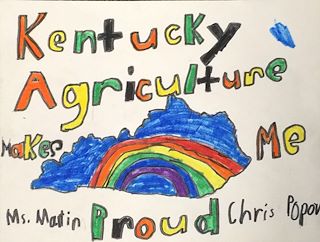 Kentucky
Agriculture
Makes Me
Ms. Matin Proud Chris Popov